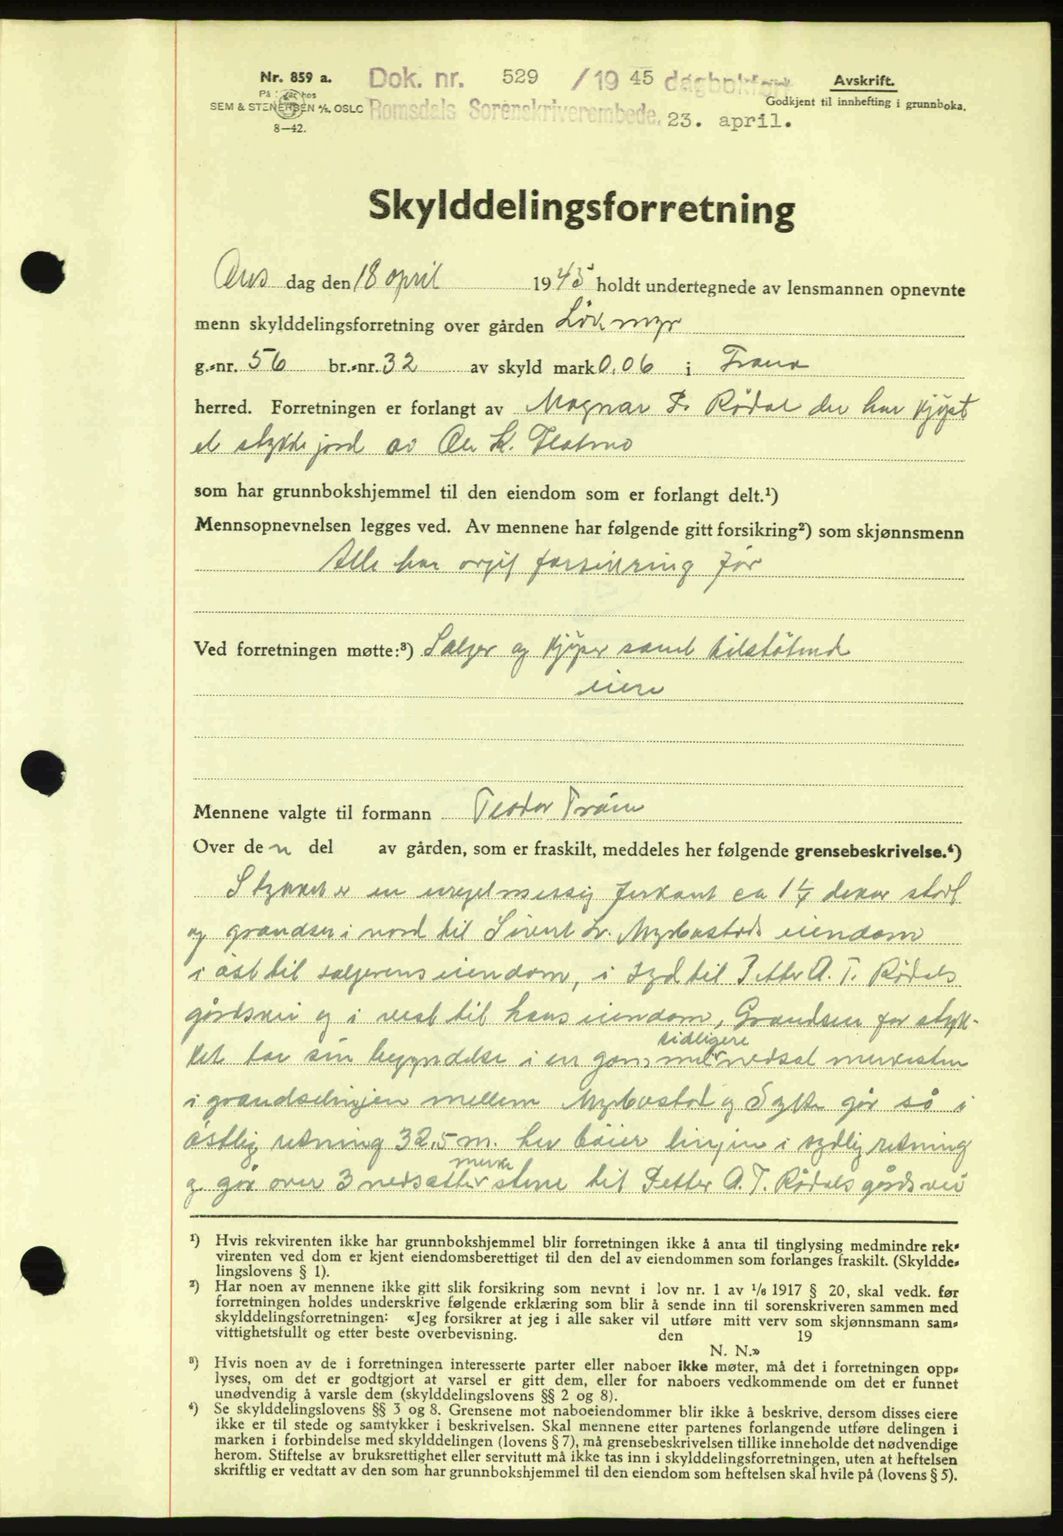 Nr. 859 a.
På lager hos
SEM & STENERSEN A/S. OSLO
8—42.
Dok. nr. 529 /1945 dagbokført
Romsdals Sorenskriverembede. 23. april.
Avskrift.
Godkjent til innhefting i grunnboka.
Skylddelingsforretning
Ons dag den 18 april 1945 holdt undertegnede av lensmannen opnevnte
menn skylddelingsforretning over gården Løkmyr
g.-nr. 56 br.-nr. 32 av skyld mark 0,06 i Frena
herred. Forretningen er forlangt av Magnar P. Rødal der har kjøpt
et stykke jord av Ole K.
som har grunnbokshjemmel til den eiendom som er forlangt delt.¹)
Mennsopnevnelsen legges ved. Av mennene har følgende gitt forsikring²) som skjønnsmenn
Alle har avgit forsikring før
Ved forretningen møtte:³) Sælger og kjøper samt tilstøtend
eiere
Mennene valgte til formann Teodor
Over den del av gården, som er fraskilt, meddeles her følgende grensebeskrivelse.⁴)
Stykket er en uregelmessig firkant ca 1¼ dekar stort
og grandser i nord til Sivert Myrbostads eiendom
i øst til sælgerens eiendom, i syd til Petter A. T. Rødals
gårdsvei og i vest til hans eiendom, Grandsen for styk-
ket tar sin begyndelse i en gam. tidligere nedsat merkesten
i grandselinjen mellem Myrbostad og Syke går så i
østlig retning 32,5 m. her bøier linjen i sydlig retning
og går over 3 nedsatte merkestene til Petter A. T. Rødals gårdsvei
¹) Hvis rekvirenten ikke har grunnbokshjemmel blir forretningen ikke å anta til tinglysing medmindre rek-
virenten ved dom er kjent eiendomsberettiget til den del av eiendommen som forlanges fraskilt. (Skyldde-
lingslovens § 1).
²) Har noen av mennene ikke gitt slik forsikring som nevnt i lov nr. 1 av 1/6 1917 § 20, skal vedk. før
forretningen holdes underskrive følgende erklæring som blir å sende inn til sorenskriveren sammen med
skylddelingsforretningen: «Jeg forsikrer at jeg i alle saker vil utføre mitt verv som skjønnsmann sam-
vittighetsfullt og etter beste overbevisning. den 19
N. N.»
³) Hvis noen av de i forretningen interesserte parter eller naboer ikke møter, må det i forretningen opp-
lyses, om det er godtgjort at varsel er gitt dem, eller for naboers vedkommende om det er funnet
unødvendig å varsle dem (skylddelingslovens §§ 2 og 8).
⁴) Se skylddelingslovens §§ 3 og 8. Grensene mot naboeiendommer blir ikke å beskrive, dersom disses eiere
ikke er til stede og samtykker i beskrivelsen. Skal mennene etter partenes forlangende utføre delingen i
marken i forbindelse med skylddelingen (lovens § 7), må grensebeskrivelsen tillike inneholde det nødvendige
herom. Stiftelse av bruksrettighet eller servitutt må ikke tas inn i skylddelingsforretningen, uten at heftelsen
skriftlig er vedtatt av den som har grunnbokshjemmel til den eiendom som heftelsen skal hvile på (lovens § 5).